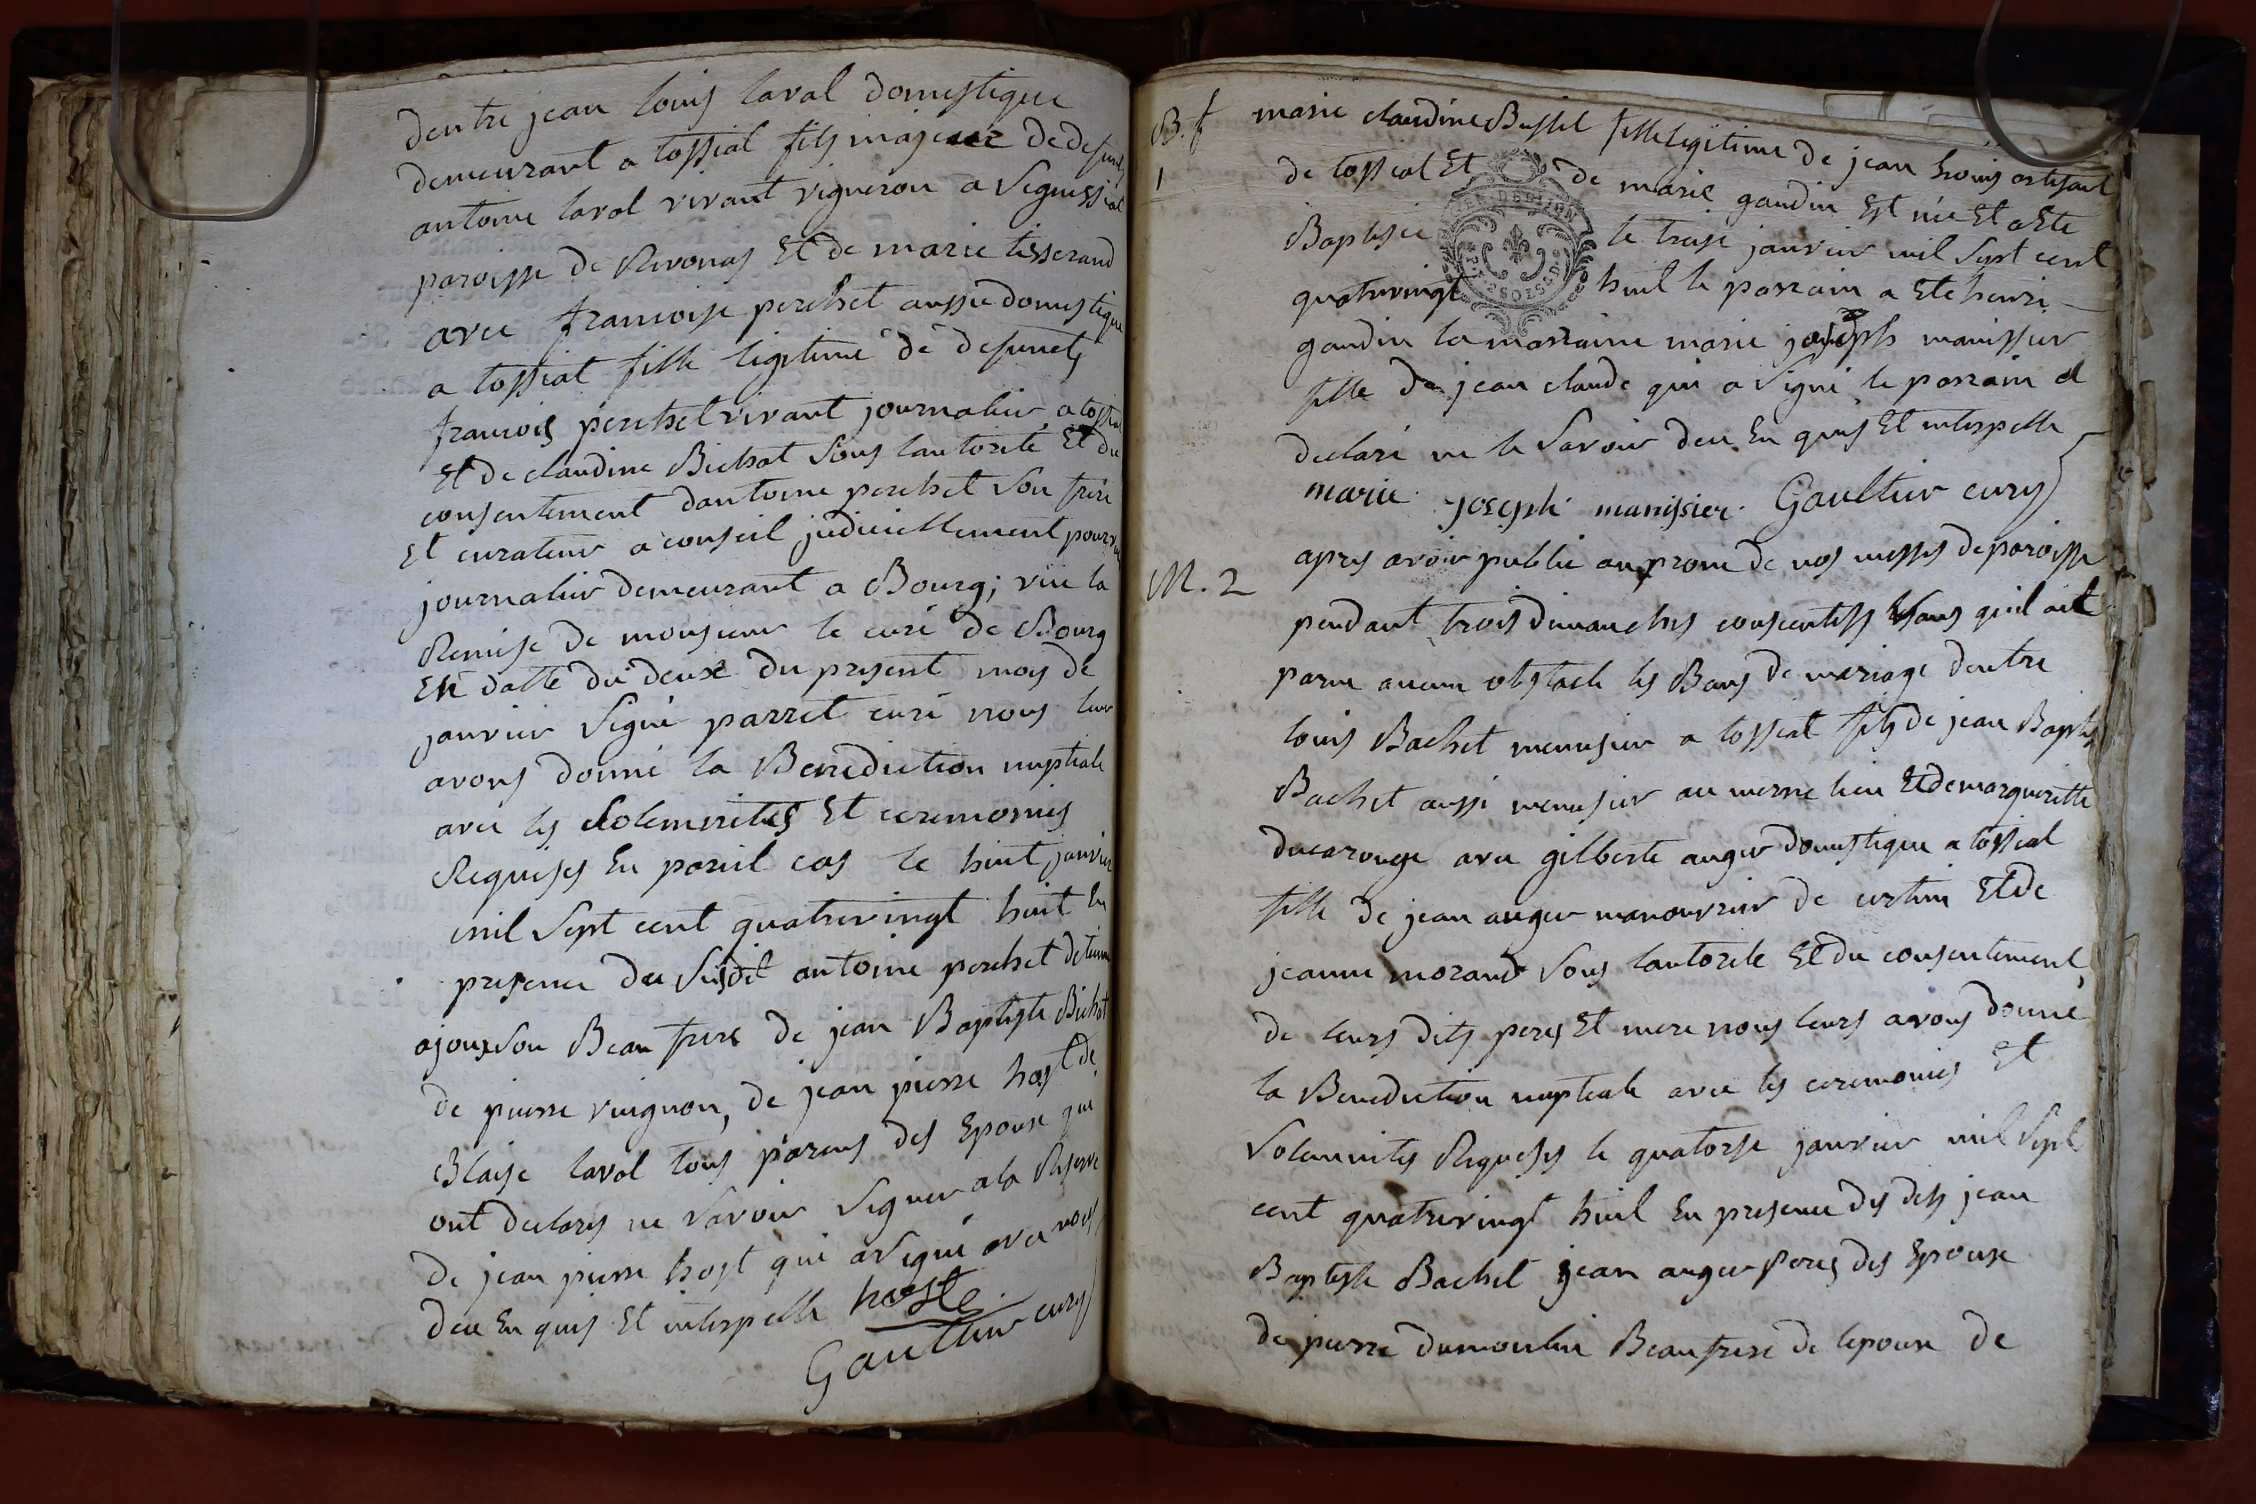 dentre jean louis laval domestique
demeurant a tossiat fils majeur de defunt
antoine laval vivant vigneron a Segnissiat
paroisse de Revonas Et de marie tisserand
avec francoise perchet aussi domestique
a tossiat fille legitime de defunts
francois perchet vivant journalier a tossiat
Et de claudine Bichat Sous lautorité Et du
consentement dantoine perchet Son frere
Et curateur a conseil judiciellement pourvu
journalier demeurant a Bourg; vüe la
Remise de monsieur le curé de Bourg
En datte du deux du present mois de
janvier Signé parret curé nous leur
avons donné la Benediction nuptiale
avec les Solemnites Et ceremonies
Requises En pareil cas le huit janvier
mil Sept cent quatrevingt huit En
presence du Susdit antoine perchet
ajoux Son Beau frere de jean Baptiste Bichat
de pierre vuignon, de jean pierre host de
Blaise laval tous parens des Epoux qui
ont declarés ne Savoir Signer a la Reserve
de jean pierre host qui a Signé avec nous
deu En quis Et interpelle hoste
Gaultier curé
B. f
1
marie claudine Bussel fille legitime de jean louis artisant
de tossiat Et de marie gaudin Est née Et a Ete
Baptisée le treise janvier mil Sept cent
quatrevingt huit le parrain a Ete henri
gaudin la marraine marie joseph manissier
fille de jean claude qui a Signé le parrain a
declaré ne le Savoir deu En quis Et interpelle
marie joseph manissier. Gaultier curé
M. 2
apres avoir publié au prone de nos messes de paroisse
pendant trois dimanches consecutifs Sans quil ait
paru aucun obstacle les Bans de mariage dentre
louis Bachet menusier a tossiat fils de jean Baptiste
Bachet aussi menusier au meme lieu Et de margueritte
ducarouge avec gilberte auger domestique a tossiat
fille de jean auger manouvrier de certine Et de
jeanne morand Sous lautorite Et du consentement
de leurs dits peres Et mere nous leurs avons donné
la Benediction nuptiale avec les ceremonies Et
Solemnites Requises le quatorse janvier mil Sept
cent quatrevingt huit En presence des dits jean
Baptiste Bachet jean auger peres des Epoux
de pierre dumoulin Beaufrere de lepoux de